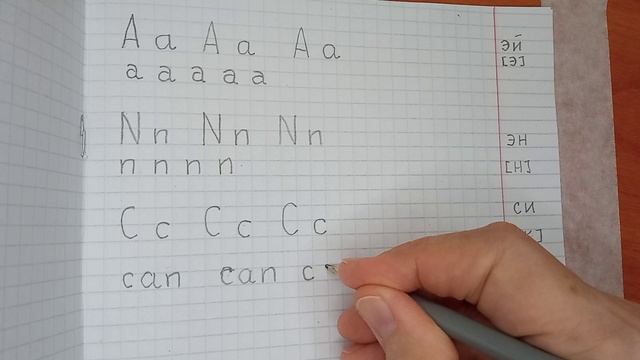 A a A a A a эй
a a a a a [э]
N n N n N n эн
n n n n [н]
C c C c C c си
can can c